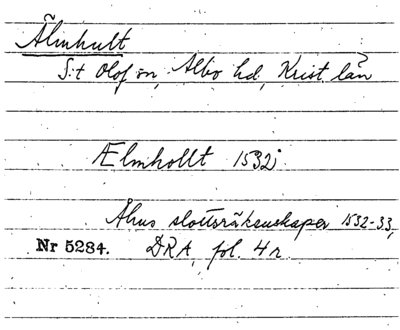 Älmhult
S:t Olof sn, Albo hd, Krist. län
Ælmhollt 1532
Åhus slottsräkenskaper 1532-33,
Nr 5284. DRA, fol. 4 r.